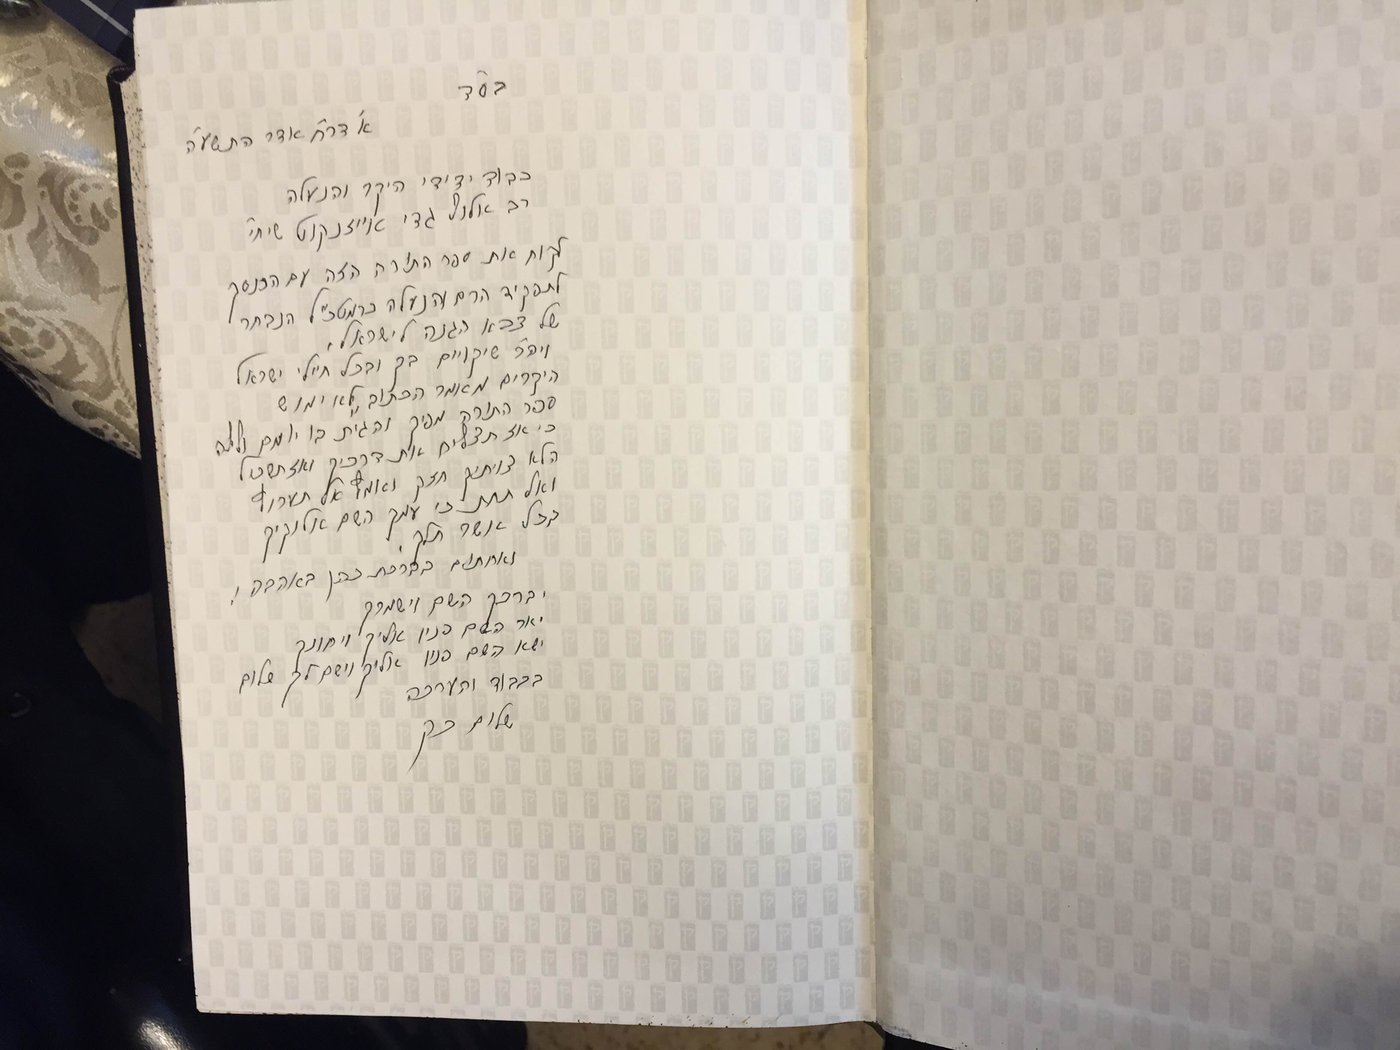 בס"ד
א' דר"ח אדר התשע"ה
כבוד ידידי היקר והנעלה
רב אלוף גדי אייזנקוט שיחי'
קח את ספר התורה הזה עם הכנסך
לתפקיד הרם והנעלה כרמטכ"ל הנבחר
של צבא הגנה לישראל.
ויה"ר שיקויים בך ובכל חיילי ישראל
היקרים מאמר הכתוב "לא ימוש
ספר התורה מפיך והגית בו יומם ולילה
כי אז תצליח את דרכיך ואז תשכיל
הלא צויתיך חזק ואמץ אל תערוץ
ואל תחת כי עמך השם אלוקיך
בכל אשר תלך.
ואחתום בברכת כהן באהבה,
יברכך השם וישמרך
יאר השם פניו אליך ויחונך
ישא השם פניו אליך וישם לך שלום
בכבוד והערכה
שלום